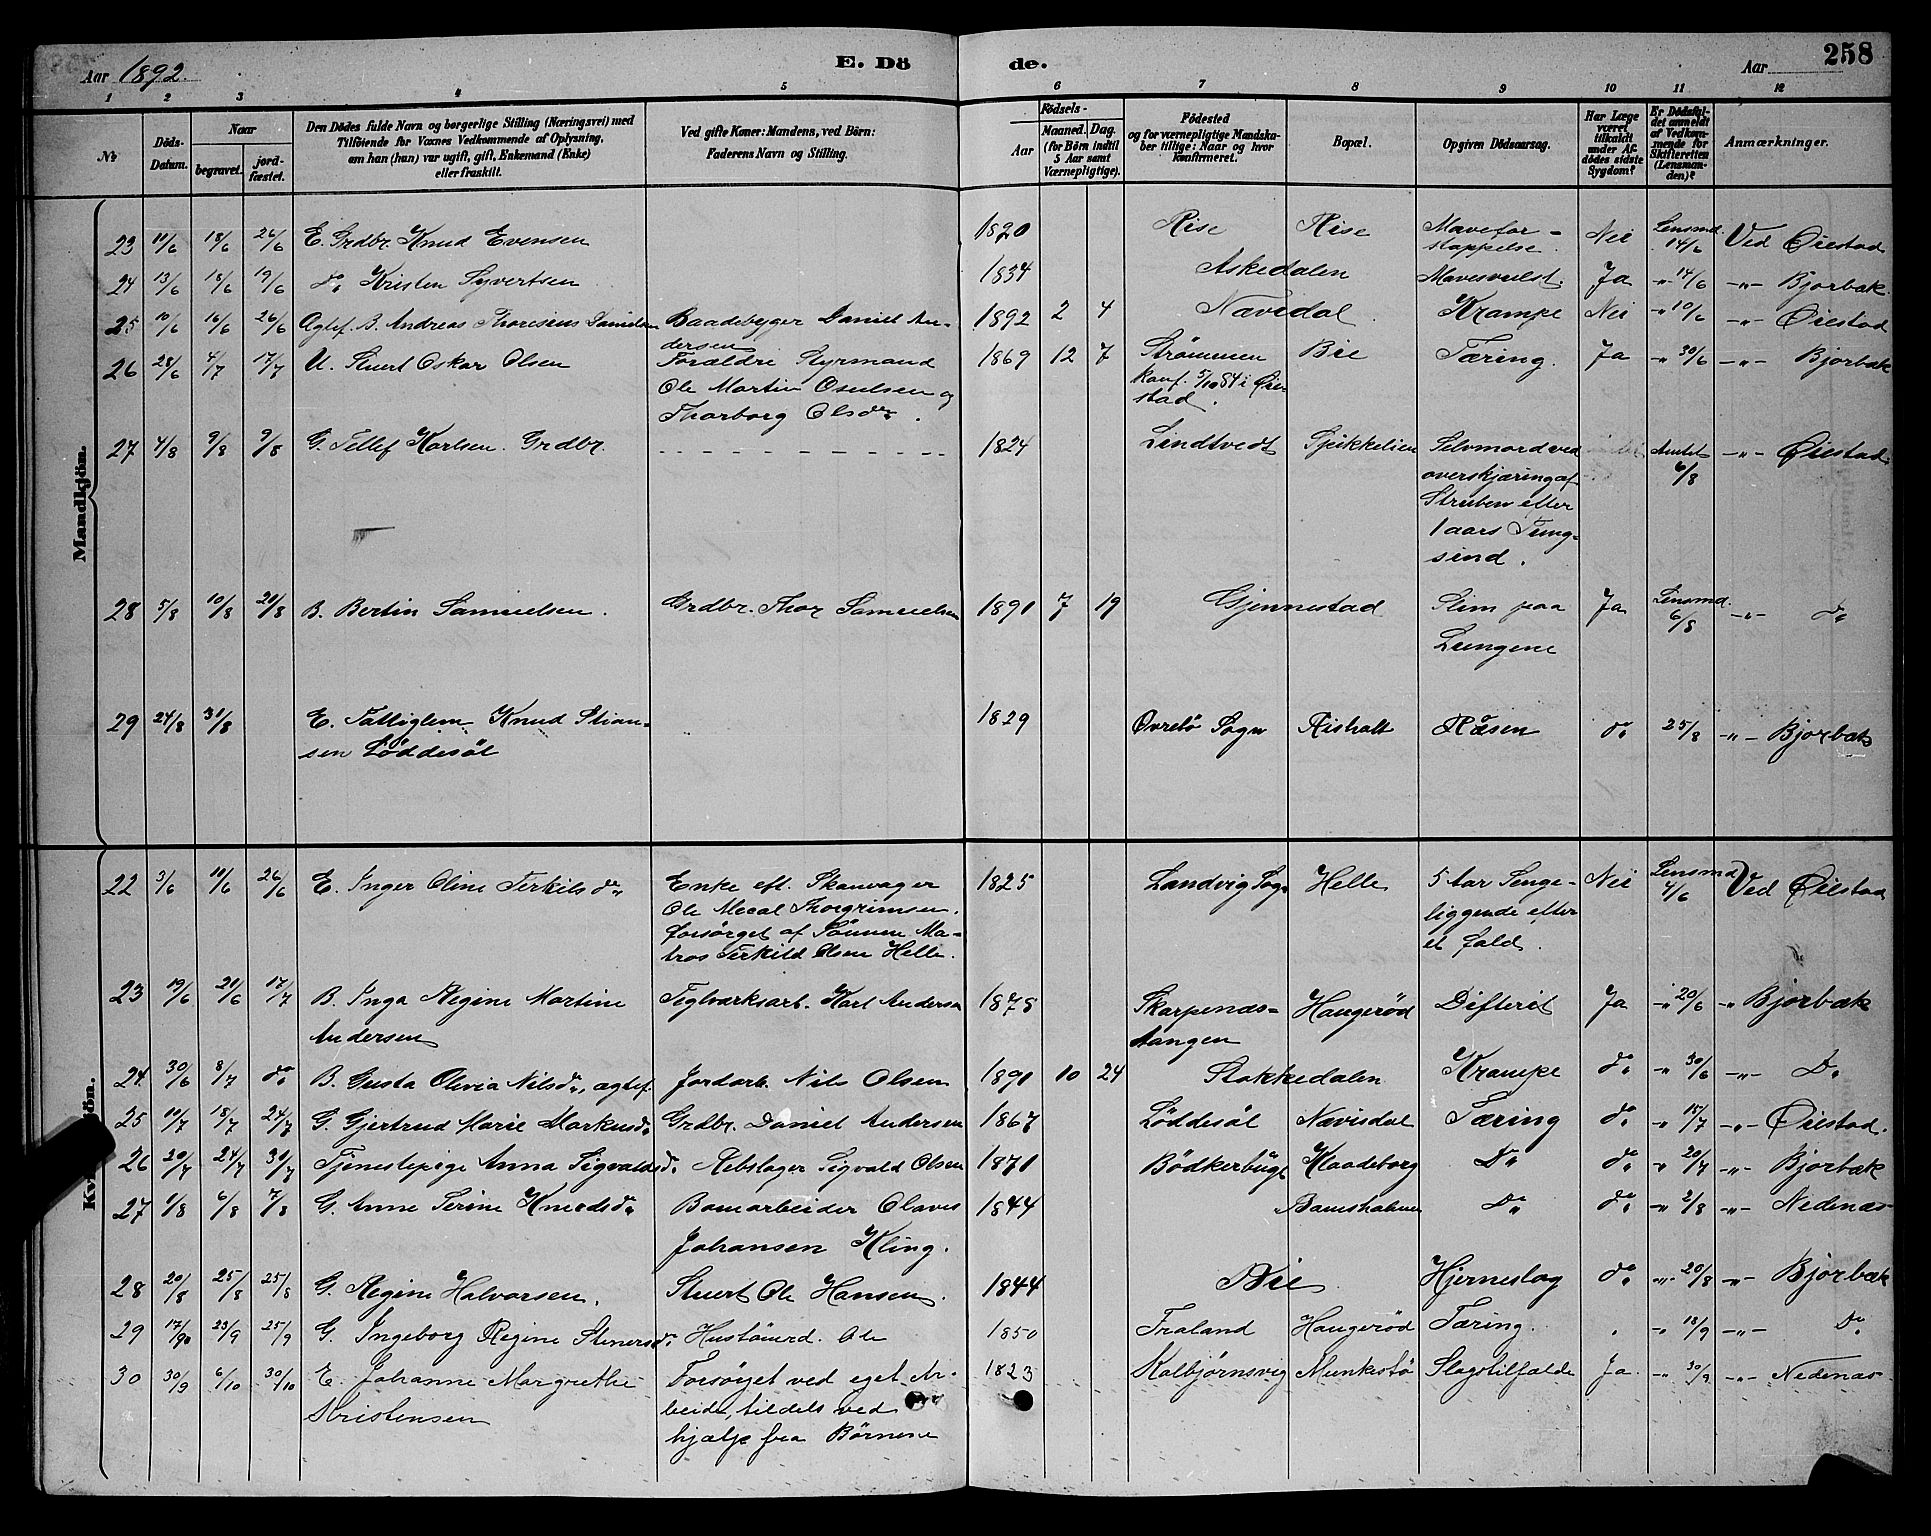 Aar 1892. E. Dö de. Aar 258
1 2 3 4 5 6 7 8 9 10 11 12
No Döds-Datum. Naar begravet. jord-fæstet. Den Dödes fulde Navn og borgerlige Stilling (Næringsvei) med Tilföiende for Voxnes Vedkommende af Oplysning, om han (hun) var ugift, gift, Enkemand (Enke) eller fraskilt. Ved gifte Koner: Mandens, ved Börn: Faderens Navn og Stilling. Födsels- Aar Maaned. Dag. (for Börn indtil 5 Aar samt Værnepligtige). Födested og for værnepligtige Mandskaber tillige: Naar og hvor konfirmeret. Bopæl. Opgiven Dödsaarsag. Har Læge været tilkaldt under Afdödes sidste Sygdom? Er Dödsfaldet anmeldt af Vedkommende for Skifteretten (Lensmanden)? Anmærkninger.
Mandkjön.
23 11/6 18/6 26/6 E. Grdbr. Knud Evensen 1820 Rise Rise Mavefor-
slappelse. Nei Lensmd. 14/6 Ved Øiestad
24 13/6 18/6 19/6 do Kristen Syvertsen 1834 Askedalen Mavesvulst. Ja -"- 14/6 -"- Bjorbæk.
25 10/6 16/6 26/6 Agtef. B. Andreas Thoresens Danielsen Baadebyger Daniel An-
dersen 1892 2 4 Nævisdal Krampe Nei " 10/6 -"- Øiestad
26 28/6 4/7 17/7 U. Stuert Oskar Olsen Forældre Styrmand
Ole Martin Oselsen og
Thorborg Olsdr. 1869 12 7 Strømmen
konf. 5/10 84 i Øie-
stad. Bie Tæring. Ja -"- 30/6 -"- Bjorbæk
27 4/8 9/8 9/8 G. Tellef Karlsen. Grdbr. - - - - - - - - - - - 1824 Lindtvedt Spikkelien Selvmord ved
overskjæring af
Struben efter
1 aars Tung-
sind. Amtet 6/8 -"- Øiestad
28 5/8 10/8 21/8 B. Bertin Samuelsen. Grdbr. Thor Samuelsen 1891 7 19 Gjennestad Slim paa
Lungene Ja Lensmd. 6/8 -"- do
29 24/8 31/8 E. Fattiglem Knud Stian-
sen Løddesøl 1829 Øvrebø Sogn Risholt Rosen do 25/8 -"- Bjorbæk
22 3/6 11/6 26/6 E. Inger Oline Terkilsdr Enke eft. Skauvager
Ole Mecal Thorgrimsen.
forsørget af Sønnen Ma-
tros Terkild Olsen Helle. 1825 Landvig Sogn Helle 5 Aar Senge-
liggende efter
et fald. Nei Lensmd. 4/6 Ved Øiestad
23 19/6 21/6 17/7 B. Inga Regine Martine
Andersen Teglværksarb. Karl Andersen 1878 Skarpenæs-
tangen Haugerød Difterit Ja -"- 20/6 -"- Bjorbæk
24 30/6 8/7 do B. Gusta Olivia Nilsdr, agtef. Jordarb. Nils Olsen 1891 10 24 Stokkedalen Krampe do " 30/6 -"- Do
25 10/7 18/7 24/7 G. Gjertrud Marie Markusdr Grdbr. Daniel Andersen 1867 Løddesøl Nævisdal Tæring do -"- 15/7 -"- Øiestad.
26 20/7 24/7 31/7 Tjenestepige Anna Sigvaldsdr. Rebslager Sigvald Olsen 1871 Bödkerbugt Klaadeborg Do do " 20/7 -"- Bjorbæk
27 1/8 6/8 7/8 G. Anne Serine Knudsdr Bomarbeider Olaves
Johansen Kling. 1844 Do do -"- 2/8 -"- Nedenæs
28 20/8 25/8 25/8 G. Regine Halvorsen. Stuert Ole Hansen. 1844 Bie Hjerneslag do -"- 20/8 -"- Bjorbæk
29 17/9 23/9 25/9 G. Ingeborg Regine Stenersdr. Hustömrd. Ole 1850 Froland Haugerød Tæring. " -"- 18/9 -"- Do
30 30/9 6/10 30/10 E. Johanne Margrethe
Kristensen Forsørget ved eget Ar-
beide, tildels ved
hjælp fra Børnene 1823 Kolbjørnsvig Munkebø Slagtilfælde Ja. -"- 30/9 -"- Nedenæs